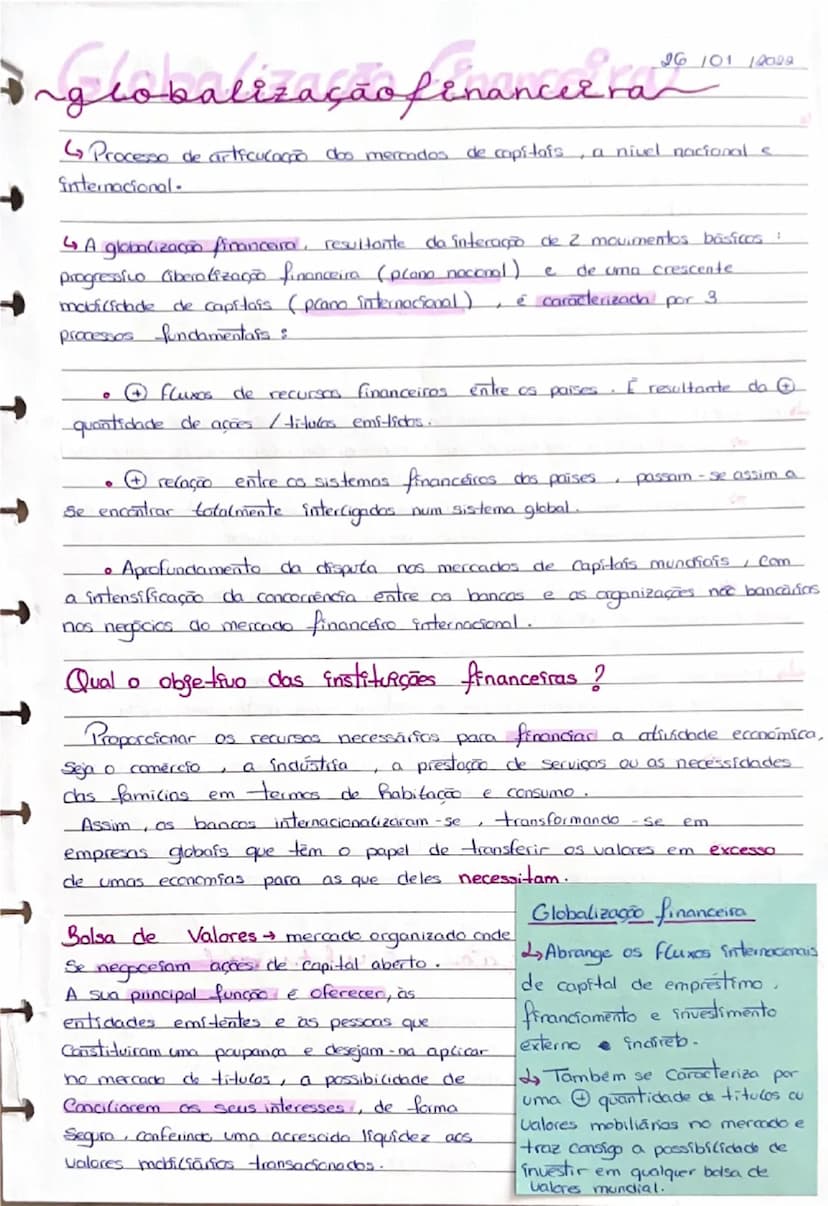 26 /01 /2022
Globalização Financeira
~globalização financeira~
↳ Processo de articulação dos mercados de capitais, a nível nacional e
internacional.
↳ A globalização financeira, resultante da interação de 2 movimentos básicos :
progressivo liberalização financeira (plano nacional) e de uma crescente
mobilidade de capitais (plano internacional), é caracterizada por 3
processos fundamentais :
• ⊕ fluxos de recursos financeiros entre os países. É resultante da ⊕
quantidade de ações / títulos emitidos.
• ⊕ relação entre os sistemas financeiros dos países, passam-se assim a
se encontrar totalmente interligados num sistema global.
• Aprofundamento da disputa nos mercados de capitais mundiais, com
a intensificação da concorrência entre os bancos e as organizações não bancárias
nos negócios do mercado financeiro internacional.
Qual o objetivo das instituições financeiras ?
Proporcionar os recursos necessários para financiar a atividade económica,
seja o comércio, a indústria, a prestação de serviços ou as necessidades
das famílias em termos de habitação e consumo.
Assim, os bancos internacionalizaram-se, transformando-se em
empresas globais que têm o papel de transferir os valores em excesso
de umas economias para as que deles necessitam.
Bolsa de Valores → mercado organizado onde
se negoceiam ações de capital aberto.
A sua principal função é oferecer, às
entidades emitentes e às pessoas que
constituíram uma poupança e desejam-na aplicar
no mercado de títulos, a possibilidade de
conciliarem os seus interesses, de forma
segura, conferindo uma acrescida liquidez aos
valores mobiliários transacionados.
Globalização financeira
↳ Abrange os fluxos internacionais
de capital de empréstimo,
financiamento e investimento
externo e indireto.
↳ Também se caracteriza por
uma ⊕ quantidade de títulos ou
valores mobiliários no mercado e
traz consigo a possibilidade de
investir em qualquer bolsa de
valores mundial.